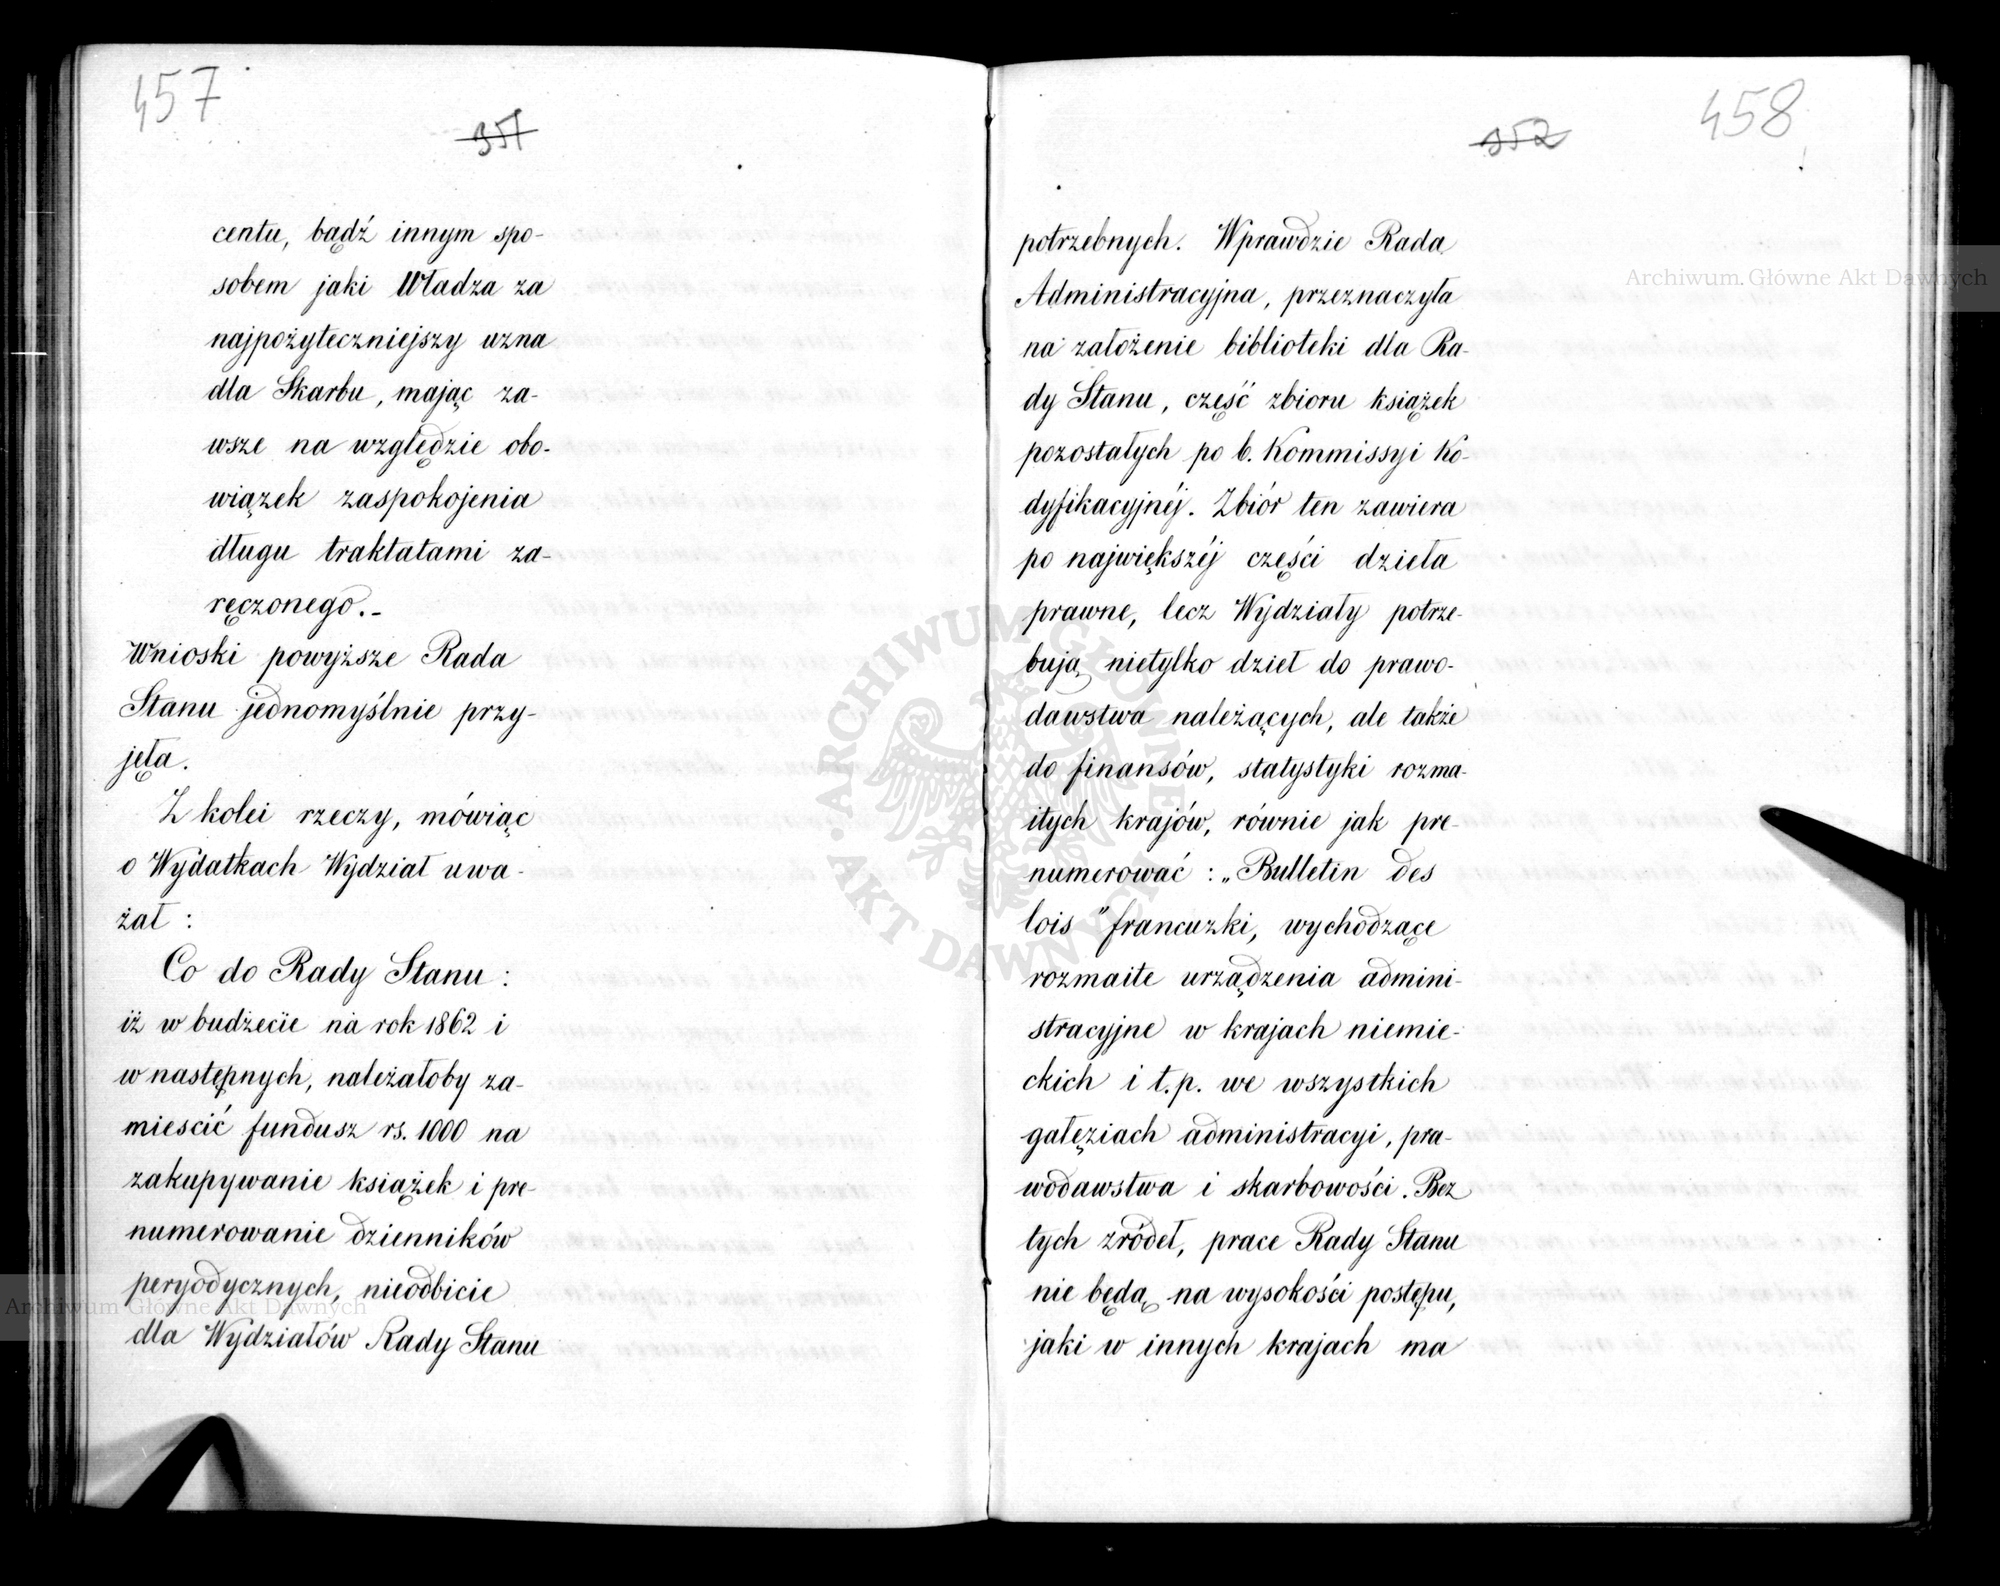 457
351
centu, bądź innym spo-
sobem jaki Władza za
najpożyteczniejszy uzna
dla Skarbu, mając za-
wsze na względzie obo-
wiązek zaspokojenia
długu traktatami za-
ręczonego.-
Wnioski powyższe Rada
Stanu jednomyślnie przy-
jęła.
Z kolei rzeczy, mówiąc
o Wydatkach Wydział uwa-
żał :
Co do Rady Stanu :
iż w budżecie na rok 1862 i
w następnych, należałoby za-
mieścić fundusz rs. 1000 na
zakupywanie książek i pre-
numerowanie dzienników
peryodycznych, nieodbicie
dla Wydziałów Rady Stanu
458
352
potrzebnych. Wprawdzie Rada
Administracyjna, przeznaczyła
na założenie biblioteki dla Ra-
dy Stanu, część zbioru książek
pozostałych po b. Kommissyi Ko-
dyfikacyjnéj. Zbiór ten zawiera
po największéj części dzieła
prawne, lecz Wydziały potrze-
bują nietylko dzieł do prawo-
dawstwa należących, ale także
do finansów, statystyki rozma-
itych krajów, równie jak pre-
numerować : „Bulletin des
lois" francuzki, wychodzące
rozmaite urządzenia admini-
stracyjne w krajach niemie-
ckich i t.p. we wszystkich
gałęziach administracyi, pra-
wodawstwa i skarbowości. Bez
tych źródeł, prace Rady Stanu
nie będą na wysokości postępu,
jaki w innych krajach ma
Archiwum Główne Akt Dawnych
Archiwum Główne Akt Dawnych
ARCHIWUM GŁÓWNE AKT DAWNYCH